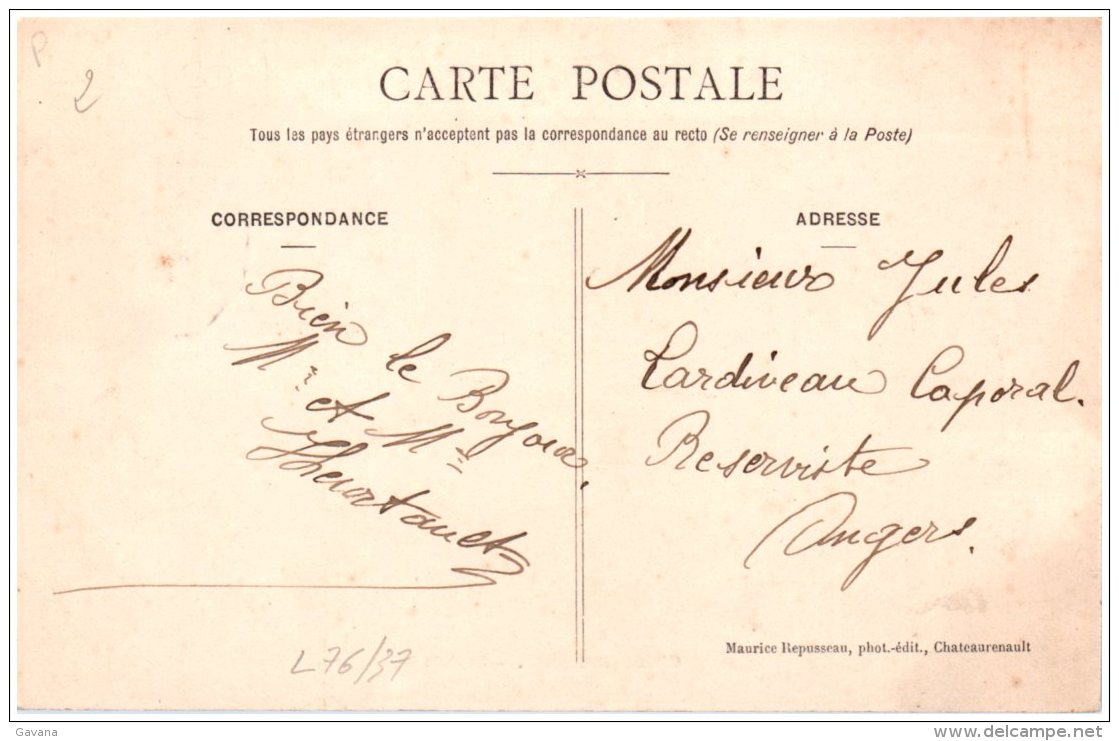 P.
2
CARTE POSTALE
Tous les pays étrangers n'acceptent pas la correspondance au recto (Se renseigner à la Poste)
CORRESPONDANCE
Bien le Bonjour,
Mr et Mme
ADRESSE
Monsieur Jules
Tardiveau Caporal.
Reserviste
Angers.
Maurice Repusseau, phot.-édit., Chateaurenault
L76/37
Gavana
www.delcampe.net